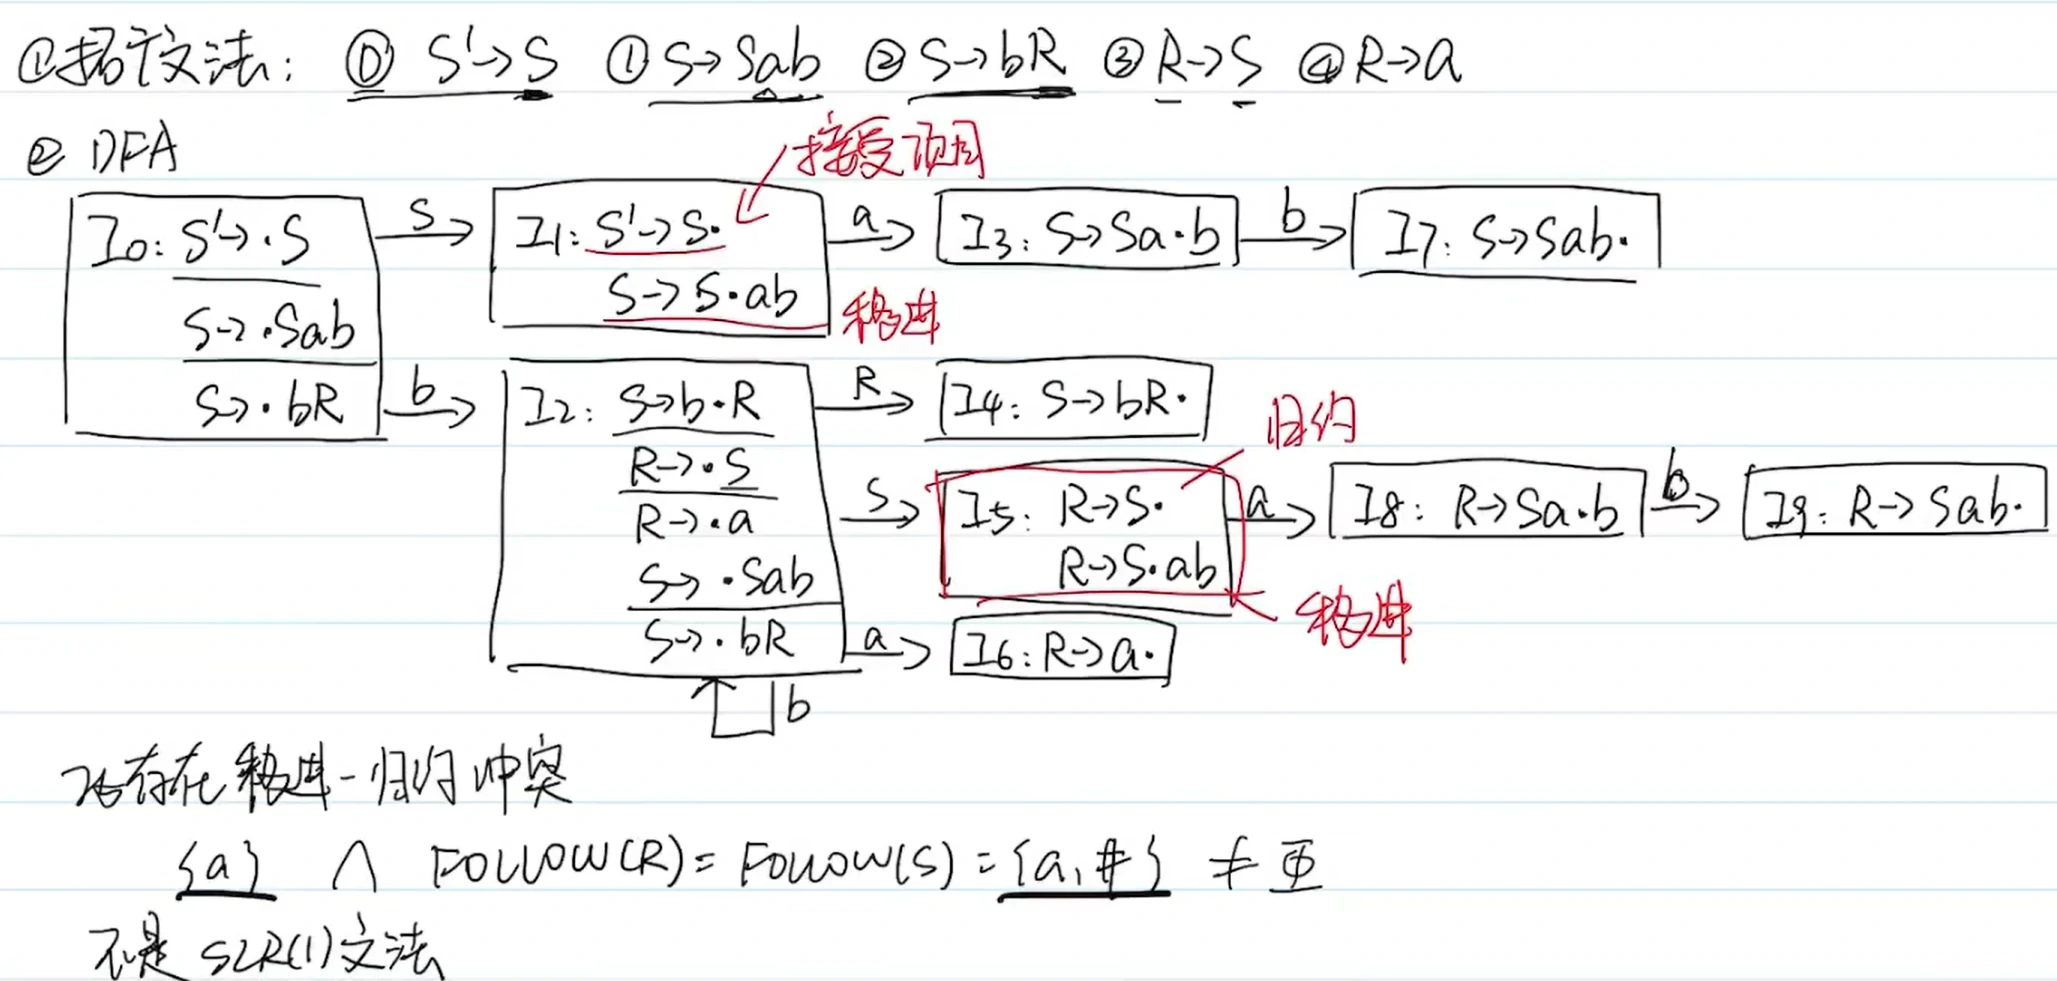 ①拓广文法： ⓪ S'→S ① S→Sab ② S→bR ③ R→S ④ R→a
② DFA
接受项目
I0: S'→·S
S→·Sab
S→·bR
S
b
I1: S'→S·
S→S·ab
移进
a
I3: S→Sa·b
b
I7: S→Sab·
I2: S→b·R
R→·S
R→·a
S→·Sab
S→·bR
b
R
I4: S→bR·
归约
S
I5: R→S·
R→S·ab
移进
a
I8: R→Sa·b
b
I9: R→Sab·
a
I6: R→a·
存在移进-归约冲突
{a} ∧ FOLLOW(R)= FOLLOW(S) = {a,#} ≠ Φ
不是 SLR(1)文法